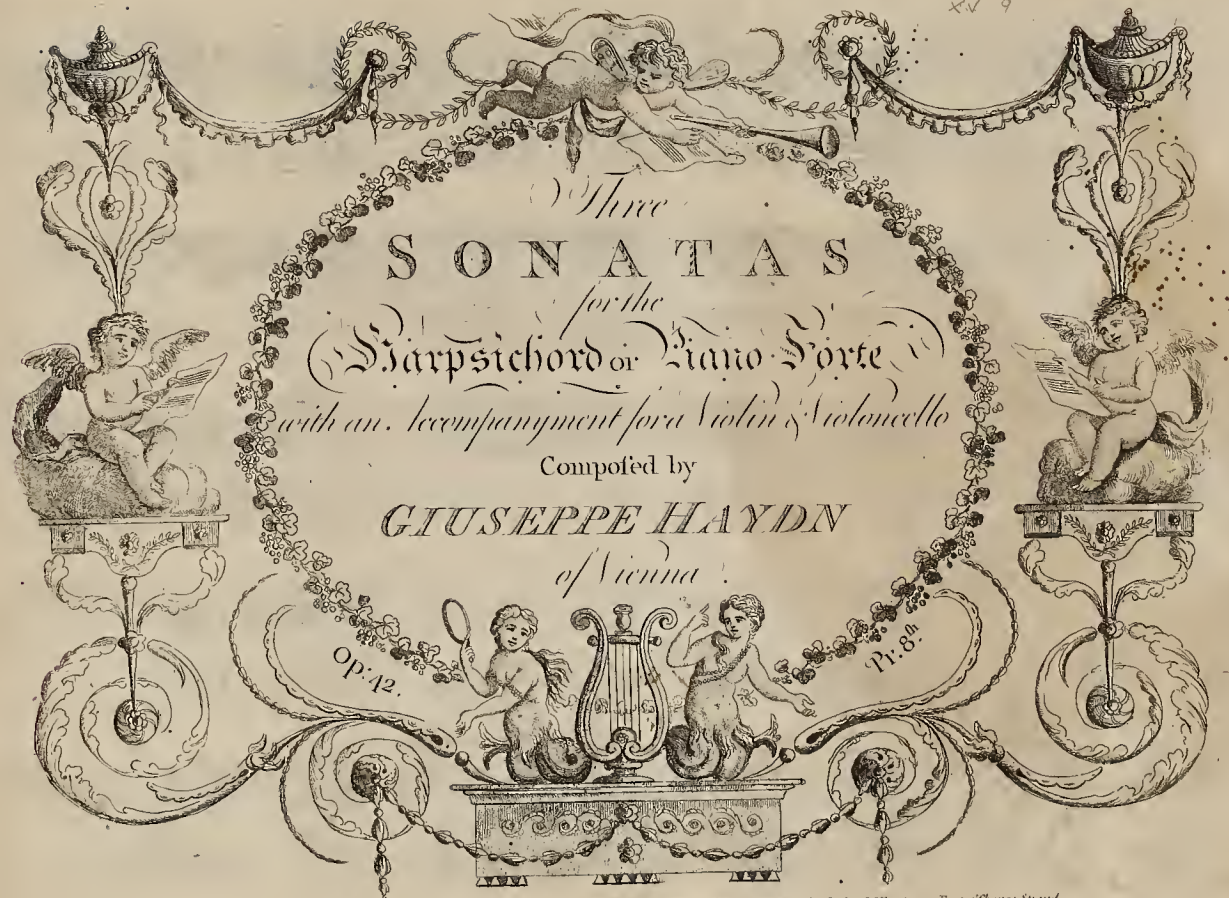 XV 9
Three
SONATAS
for the
Harpsichord or Piano-Forte
with an Accompanyment for a Violin & Violoncello
Composed by
GIUSEPPE HAYDN
of Vienna.
Op: 42.
Pr: 8.sh